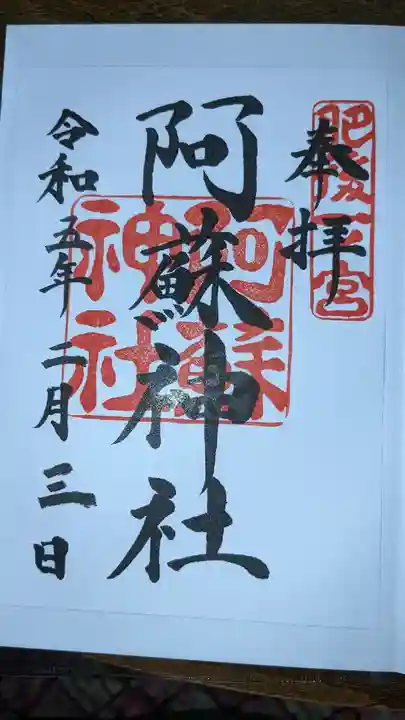 肥後一宮
奉拝
阿蘇神社
阿蘇神社
令和五年二月三日